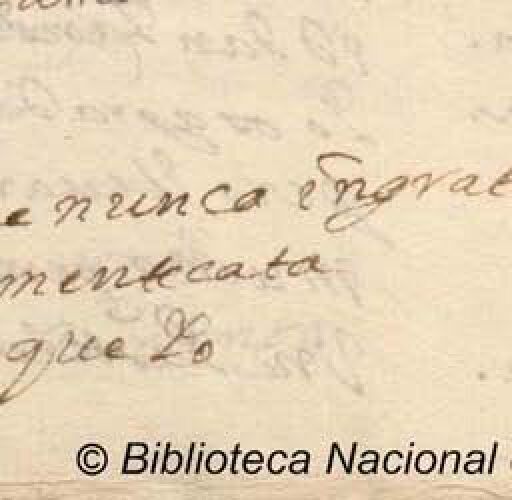 e nunca ingrat
mentecata
que Yo
© Biblioteca Nacional